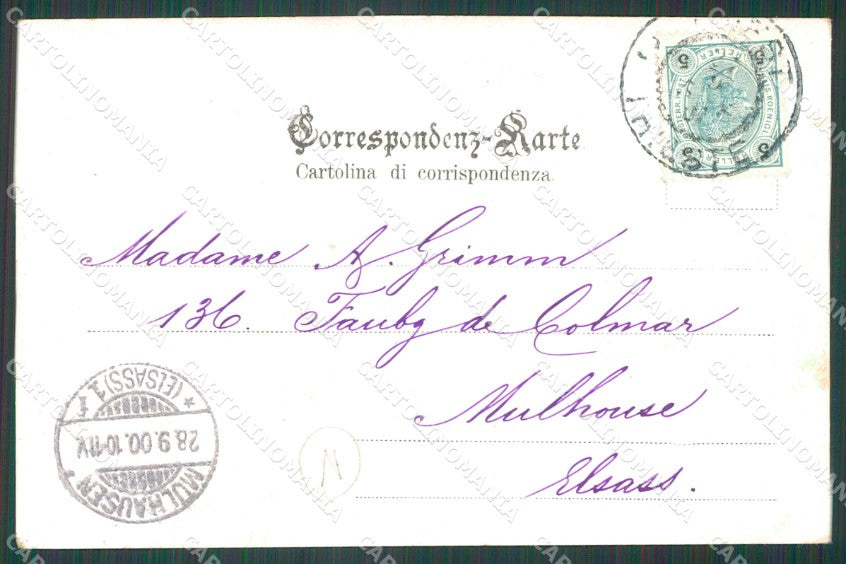 Correspondenz-Karte
Cartolina di corrispondenza
Madame A. Grimm
136. Faubg de Colmar
Mulhouse
Elsass.
MÜLHAUSEN
28.9.00.10-11V.
* (ELSASS) 1. f
N
5
5
5
CARTOLINOMANIA